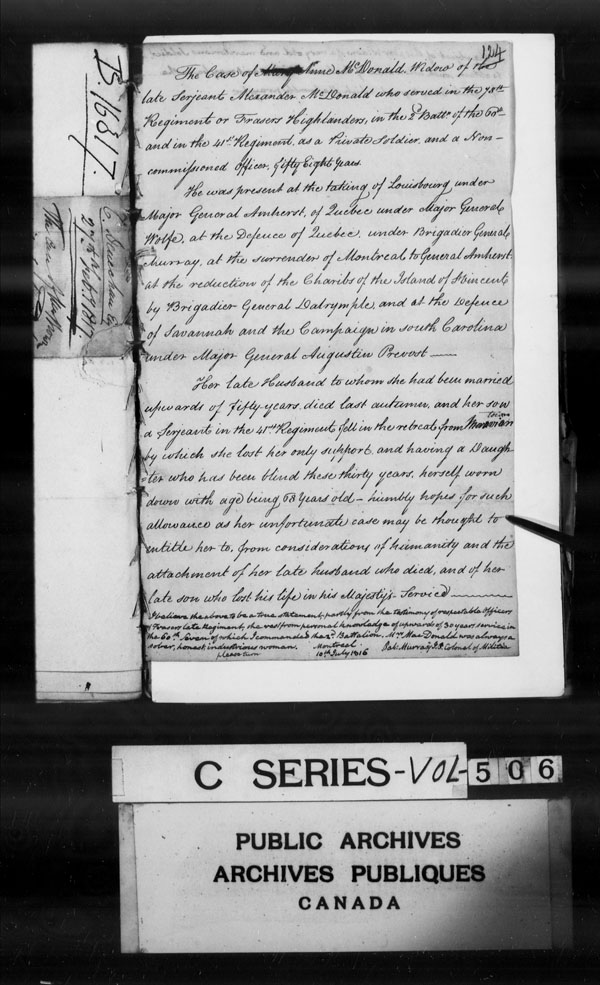 124
The Case of Anne McDonald, Widow of the
late Serjeant Alexander McDonald who served in the 78th
Regiment or Frasers Highlanders, in the 2d Battn of the 60th
and in the 41st Regiment, as a Private Soldier, and a Non-
commissioned Officer, fifty Eight Years.
He was present at the taking of Louisbourg under
Major General Amherst, of Quebec under Major General
Wolfe, at the Defence of Quebec, under Brigadier General
Murray, at the surrender of Montreal to General Amherst,
at the reduction of the Charibs of the Island of St Vincent
by Brigadier General Dalrymple, and at the Defence
of Savannah and the Campaign in South Carolina
under Major General Augustin Prevost
Her late Husband to whom she had been married
upwards of fifty years, died last autumn, and her son
a Serjeant in the 41st Regiment fell in the retreat from Moravian
town
by which she lost her only support, and having a Daugh-
ter who has been blind these thirty years, herself worn
down with age being 68 Years old - humbly hopes for such
allowance as her unfortunate case may be thought to
entitle her to, from considerations of humanity and the
attachment of her late husband who died, and of her
late son who lost his life in his Majesty's Service
I believe the above to be a true statement, partly from the testimony of respectable Officers
of Frasers late Regiment, the rest from personal knowledge of upwards of 30 years service in
the 60th Seven of which I commanded the 2d Battalion. Mrs MacDonald was always a
sober, honest industrious woman.
Montreal
10th July 1816
Pat: Murray J.P. Colonel of Militia
please turn
B. 16817.
C SERIES-VOL-506
PUBLIC ARCHIVES
ARCHIVES PUBLIQUES
CANADA